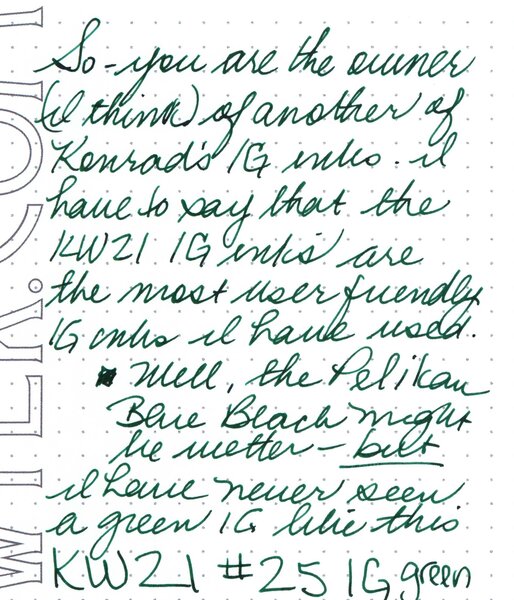 So - you are the owner
(I think) of another of
Konrad's IG inks. I
have to say that the
KWZI IG inks are
the most user friendly
IG inks I have used.
Well, the Pelikan
Blue Black might
be wetter - but
I have never seen
a green IG like this
KWZI #25 IG green